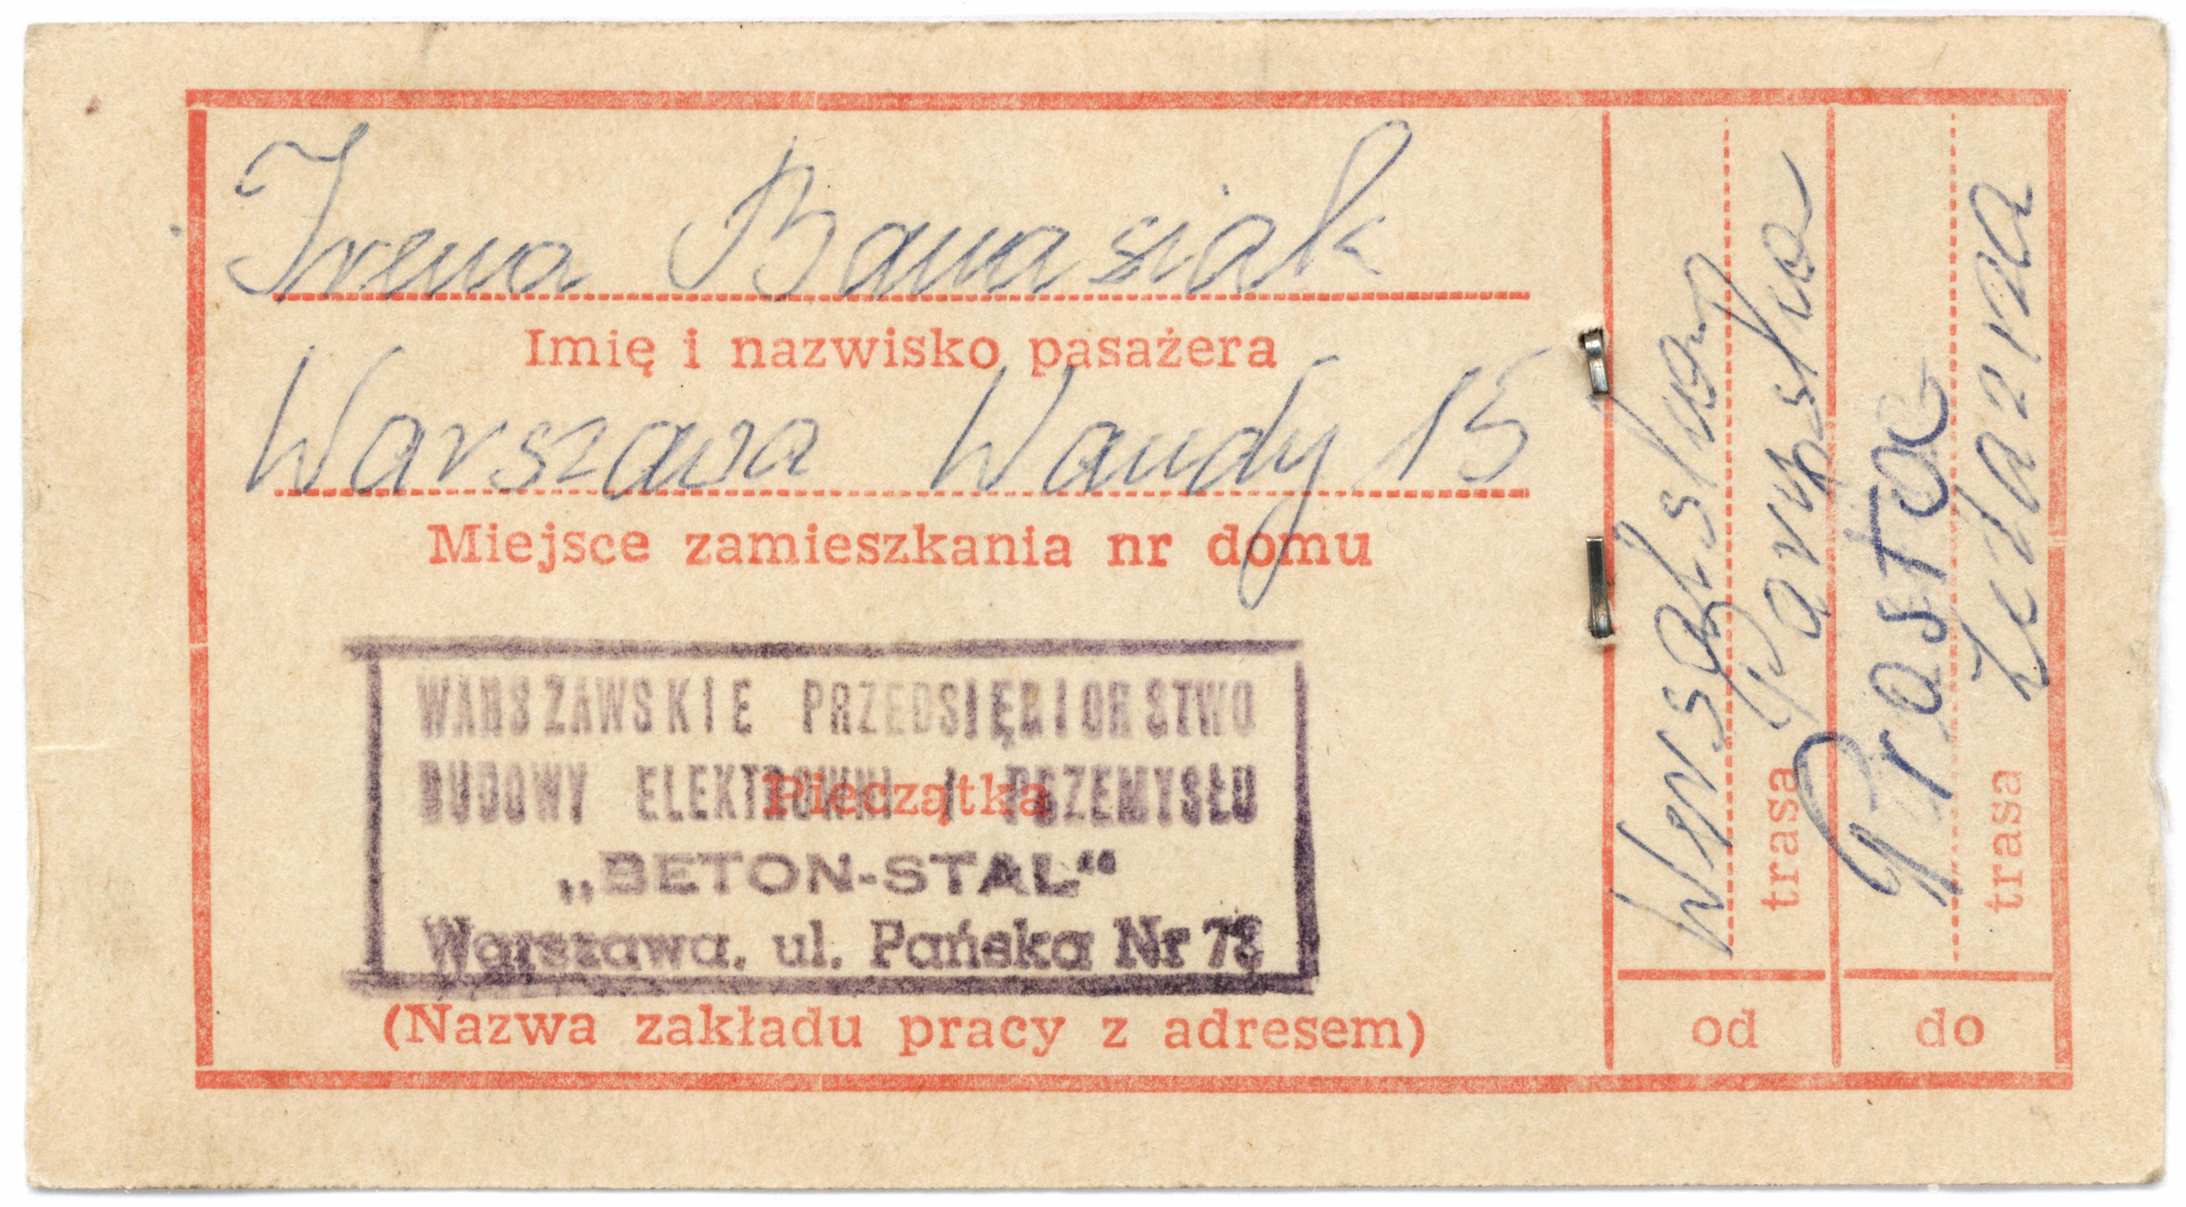 Irena Banasiak
Imię i nazwisko pasażera
Warszawa Wandy 15
Miejsce zamieszkania nr domu
WARSZAWSKIE PRZEDSIĘBIORSTWO
BUDOWY ELEKTROWNI I PRZEMYSŁU
Pieczątka
„BETON-STAL“
Warszawa, ul. Pańska Nr 73
(Nazwa zakładu pracy z adresem)
Paryska
trasa
od
Prosta
Żelazna
trasa
do